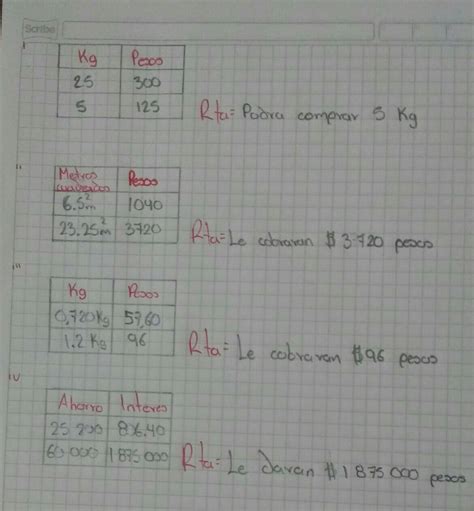 Scribe
I
Kg Pesos
25 300
5 125
Rta= Podra comprar 5 Kg
II
Metros Pesos
cuadrados
6.5²m 1040
23.25²m 3720
Rta= Le cobraran $ 3.720 pesos
III
Kg Pesos
0,720Kg 57,60
1.2 Kg 96
Rta= Le cobraran $96 pesos
IV
Ahorro Interes
25 200 806.40
60 000 1 875 000
Rta= Le daran $ 1 875 000 pesos